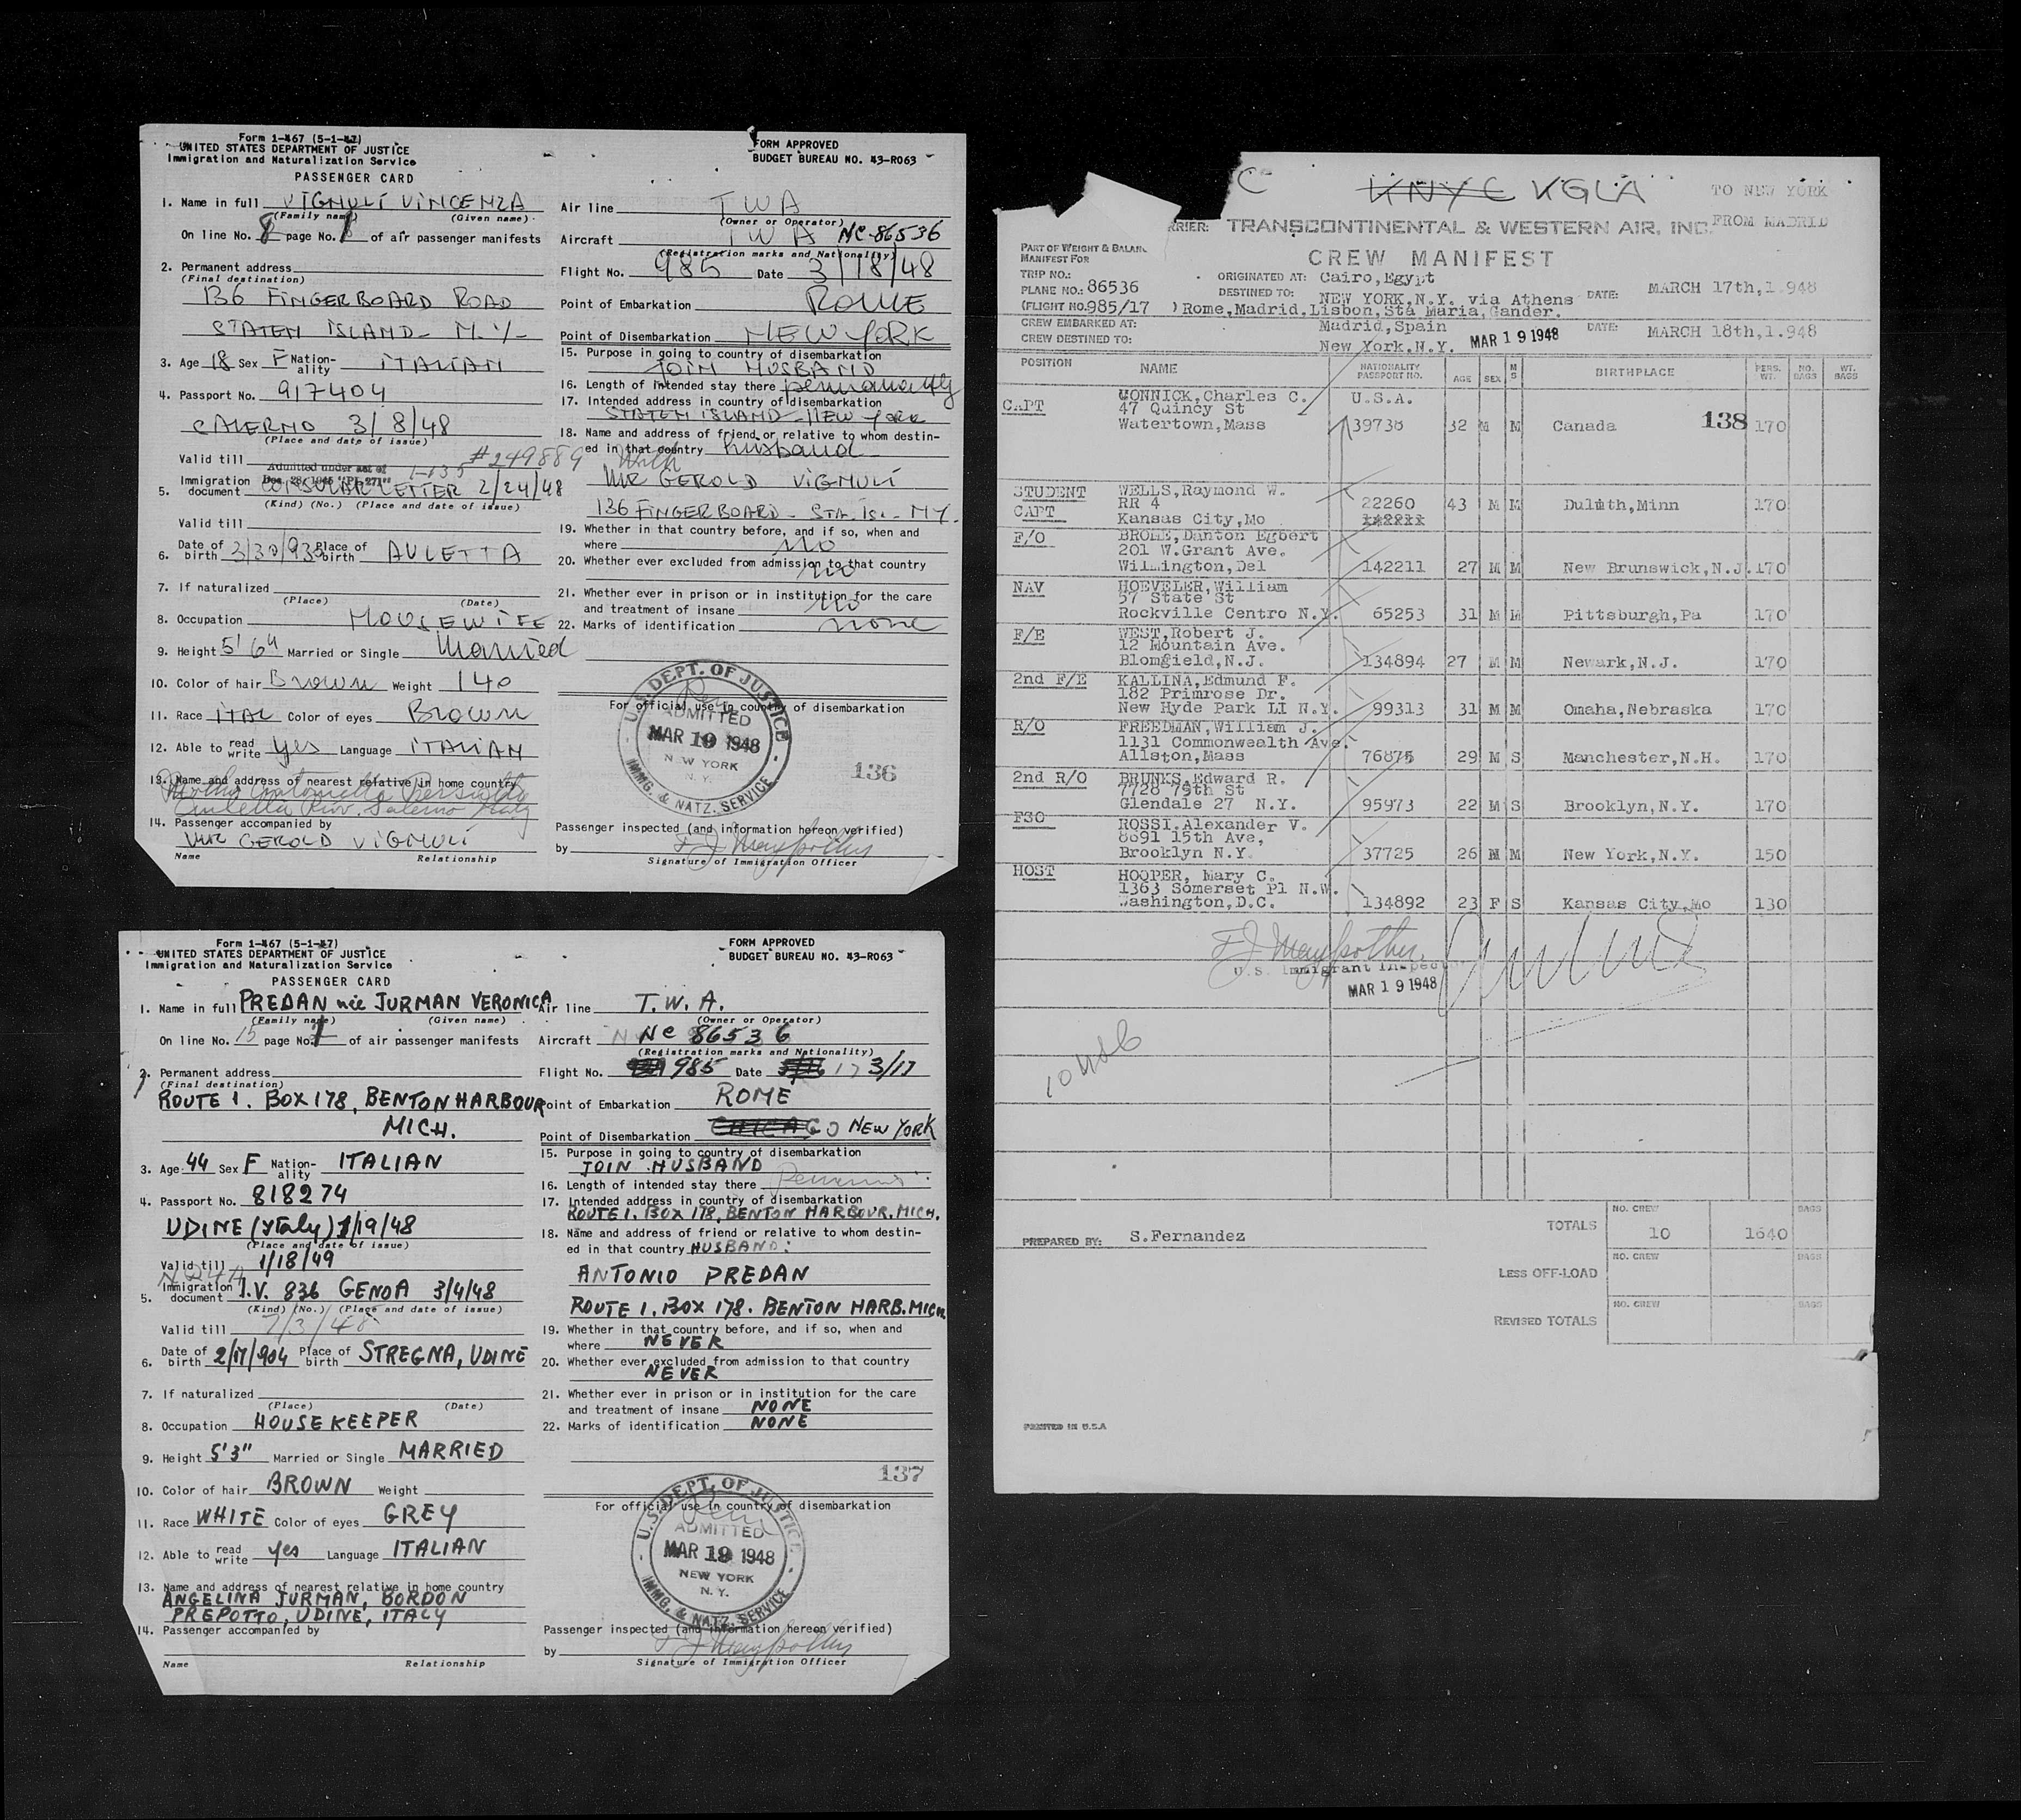 Form 1-467 (5-1-47)
UNITED STATES DEPARTMENT OF JUSTICE
Immigration and Naturalization Service
PASSENGER CARD
FORM APPROVED
BUDGET BUREAU NO. 43-R063
1. Name in full VIGNULI VINCENZA
(Family name) (Given name)
On line No. 8 page No. 1 of air passenger manifests
2. Permanent address
(Final destination)
136 FINGERBOARD ROAD
STATEN ISLAND - N.Y-
3. Age 18 Sex F Nationality ITALIAN
4. Passport No. 917404
SALERNO 3/8/48
(Place and date of issue)
Valid till #249889
Admitted under act of
Dec. 28, 1945 "PL 271" 1-135
5. Immigration document CONSULAR LETTER 2/24/48
(Kind) (No.) (Place and date of issue)
Valid till
6. Date of birth 3/30/930 Place of birth AULETTA
7. If naturalized
(Place) (Date)
8. Occupation HOUSEWIFE
9. Height 5'6" Married or Single Married
10. Color of hair Brown Weight 140
11. Race ITAL Color of eyes Brown
12. Able to read write yes Language ITALIAN
13. Name and address of nearest relative in home country
Auletta Prov. Salerno Italy
14. Passenger accompanied by
Mr GEROLD VIGNULI
Name Relationship
Air line TWA
(Owner or Operator)
Aircraft TWA NC-86536
(Registration marks and Nationality)
Flight No. 985 Date 3/18/48
Point of Embarkation ROME
Point of Disembarkation NEW YORK
15. Purpose in going to country of disembarkation
JOIN HUSBAND
16. Length of intended stay there permanently
17. Intended address in country of disembarkation
STATEN ISLAND - NEW YORK
18. Name and address of friend or relative to whom destin-
ed in that country husband
With
Mr GEROLD VIGNULI
136 FINGERBOARD - STA. IS. - N.Y.
19. Whether in that country before, and if so, when and
where no
20. Whether ever excluded from admission to that country
no
21. Whether ever in prison or in institution for the care
and treatment of insane no
22. Marks of identification none
For official use in country of disembarkation
U.S. DEPT. OF JUSTICE
ADMITTED
MAR 19 1948
NEW YORK
N.Y.
IMMG. & NATZ. SERVICE
136
Passenger inspected (and information hereon verified)
by
Signature of Immigration Officer
Form 1-467 (5-1-47)
UNITED STATES DEPARTMENT OF JUSTICE
Immigration and Naturalization Service
PASSENGER CARD
FORM APPROVED
BUDGET BUREAU NO. 43-R063
1. Name in full PREDAN née JURMAN VERONICA
(Family name) (Given name)
On line No. 15 page No. 1 of air passenger manifests
2. Permanent address
(Final destination)
ROUTE 1. BOX 178, BENTON HARBOUR
MICH.
3. Age 44 Sex F Nationality ITALIAN
4. Passport No. 818274
UDINE (Italy) 1/19/48
(Place and date of issue)
Valid till 1/18/49
5. Immigration document I.V. 836 GENOA 3/4/48
(Kind) (No.) (Place and date of issue)
Valid till 7/3/48
6. Date of birth 2/17/904 Place of birth STREGNA, UDINE
7. If naturalized
(Place) (Date)
8. Occupation HOUSEKEEPER
9. Height 5'3" Married or Single MARRIED
10. Color of hair BROWN Weight
11. Race WHITE Color of eyes GREY
12. Able to read write yes Language ITALIAN
13. Name and address of nearest relative in home country
ANGELINA JURMAN, BORDON
PREPOTTO, UDINE, ITALY
14. Passenger accompanied by
Name Relationship
Air line T.W.A.
(Owner or Operator)
Aircraft NC 86536
(Registration marks and Nationality)
Flight No. 985 Date 17 3/17
Point of Embarkation ROME
Point of Disembarkation CHICAGO NEW YORK
15. Purpose in going to country of disembarkation
JOIN HUSBAND
16. Length of intended stay there
17. Intended address in country of disembarkation
ROUTE 1. BOX 178, BENTON HARBOUR. MICH.
18. Name and address of friend or relative to whom destin-
ed in that country HUSBAND:
ANTONIO PREDAN
ROUTE 1. BOX 178. BENTON HARB. MICH.
19. Whether in that country before, and if so, when and
where NEVER
20. Whether ever excluded from admission to that country
NEVER
21. Whether ever in prison or in institution for the care
and treatment of insane NONE
22. Marks of identification NONE
137
For official use in country of disembarkation
U.S. DEPT. OF JUSTICE
ADMITTED
MAR 19 1948
NEW YORK
N.Y.
IMMG. & NATZ. SERVICE
Passenger inspected (and information hereon verified)
by
Signature of Immigration Officer
C KNYC KGLA TO NEW YORK
FROM MADRID
RRIER: TRANSCONTINENTAL & WESTERN AIR, INC.
CREW MANIFEST
PART OF WEIGHT & BALAN
MANIFEST FOR
TRIP NO.:
PLANE NO.: 86536
(FLIGHT NO. 985/17 )
ORIGINATED AT: Cairo,Egypt
DESTINED TO: NEW YORK,N.Y. via Athens
Rome,Madrid,Lisbon,Sta Maria,Gander.
DATE: MARCH 17th,1.948
CREW EMBARKED AT: Madrid,Spain DATE: MARCH 18th,1.948
CREW DESTINED TO: New York,N.Y. MAR 19 1948
POSITION NAME NATIONALITY PASSPORT NO. AGE SEX M S BIRTHPLACE PERS. WT. NO. BAGS WT. BAGS
CAPT WONNICK, Charles C. U.S.A.
47 Quincy St
Watertown,Mass 39738 32 M M Canada 138 170
STUDENT WELLS,Raymond W.
RR 4 22260 43 M M Duluth,Minn 170
CAPT Kansas City,Mo 142211
F/O BROME,Danton Egbert
201 W.Grant Ave.
Wilmington,Del 142211 27 M M New Brunswick,N.J. 170
NAV HOEVELER,William
57 State St
Rockville Centro N.Y. 65253 31 M M Pittsburgh,Pa 170
F/E WEST,Robert J.
12 Mountain Ave.
Blomgield,N.J. 134894 27 M M Newark,N.J. 170
2nd F/E KALLINA,Edmund F.
182 Primrose Dr.
New Hyde Park LI N.Y. 99313 31 M M Omaha,Nebraska 170
R/O FREEDMAN,William J.
1131 Commonwealth Ave.
Allston,Mass 76875 29 M S Manchester,N.H. 170
2nd R/O BRUNKS,Edward R.
7728 79th St
Glendale 27 N.Y. 95973 22 M S Brooklyn,N.Y. 170
FSO ROSSI,Alexander V.
8691 15th Ave,
Brooklyn N.Y. 37725 26 M M New York,N.Y. 150
HOST HOOPER, Mary C.
1363 Somerset Pl N.W.
Washington,D.C. 134892 23 F S Kansas City,Mo 130
U.S. Immigrant Inspec
MAR 19 1948
PREPARED BY: S.Fernandez
TOTALS NO. CREW 10 1640 BAGS
LESS OFF-LOAD NO. CREW BAGS
REVISED TOTALS NO. CREW BAGS
PRINTED IN U.S.A